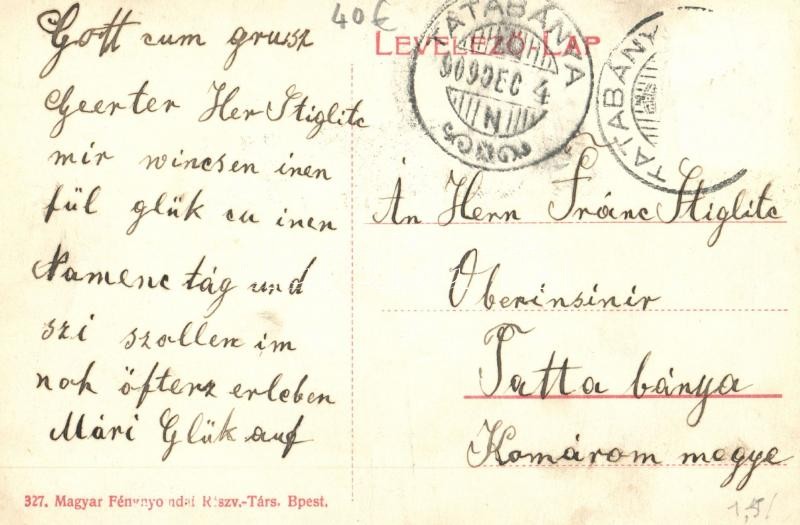 Gott cum grusz
Geerter Her Stiglitc
mir wincsen inen
fül glük cu inen
Namenc tág und
szi szollen im
noh öfterz erleben
Mári Glük auf
40€
LEVELEZŐ-LAP
TATABÁNYA
909 DEC 4
N
TATABÁNY
Án Herr Fránc Stiglitc
Oberinsinir
Tatta bánya
Komárom megye
327. Magyar Fénynyomdai Részv.-Társ. Bpest.